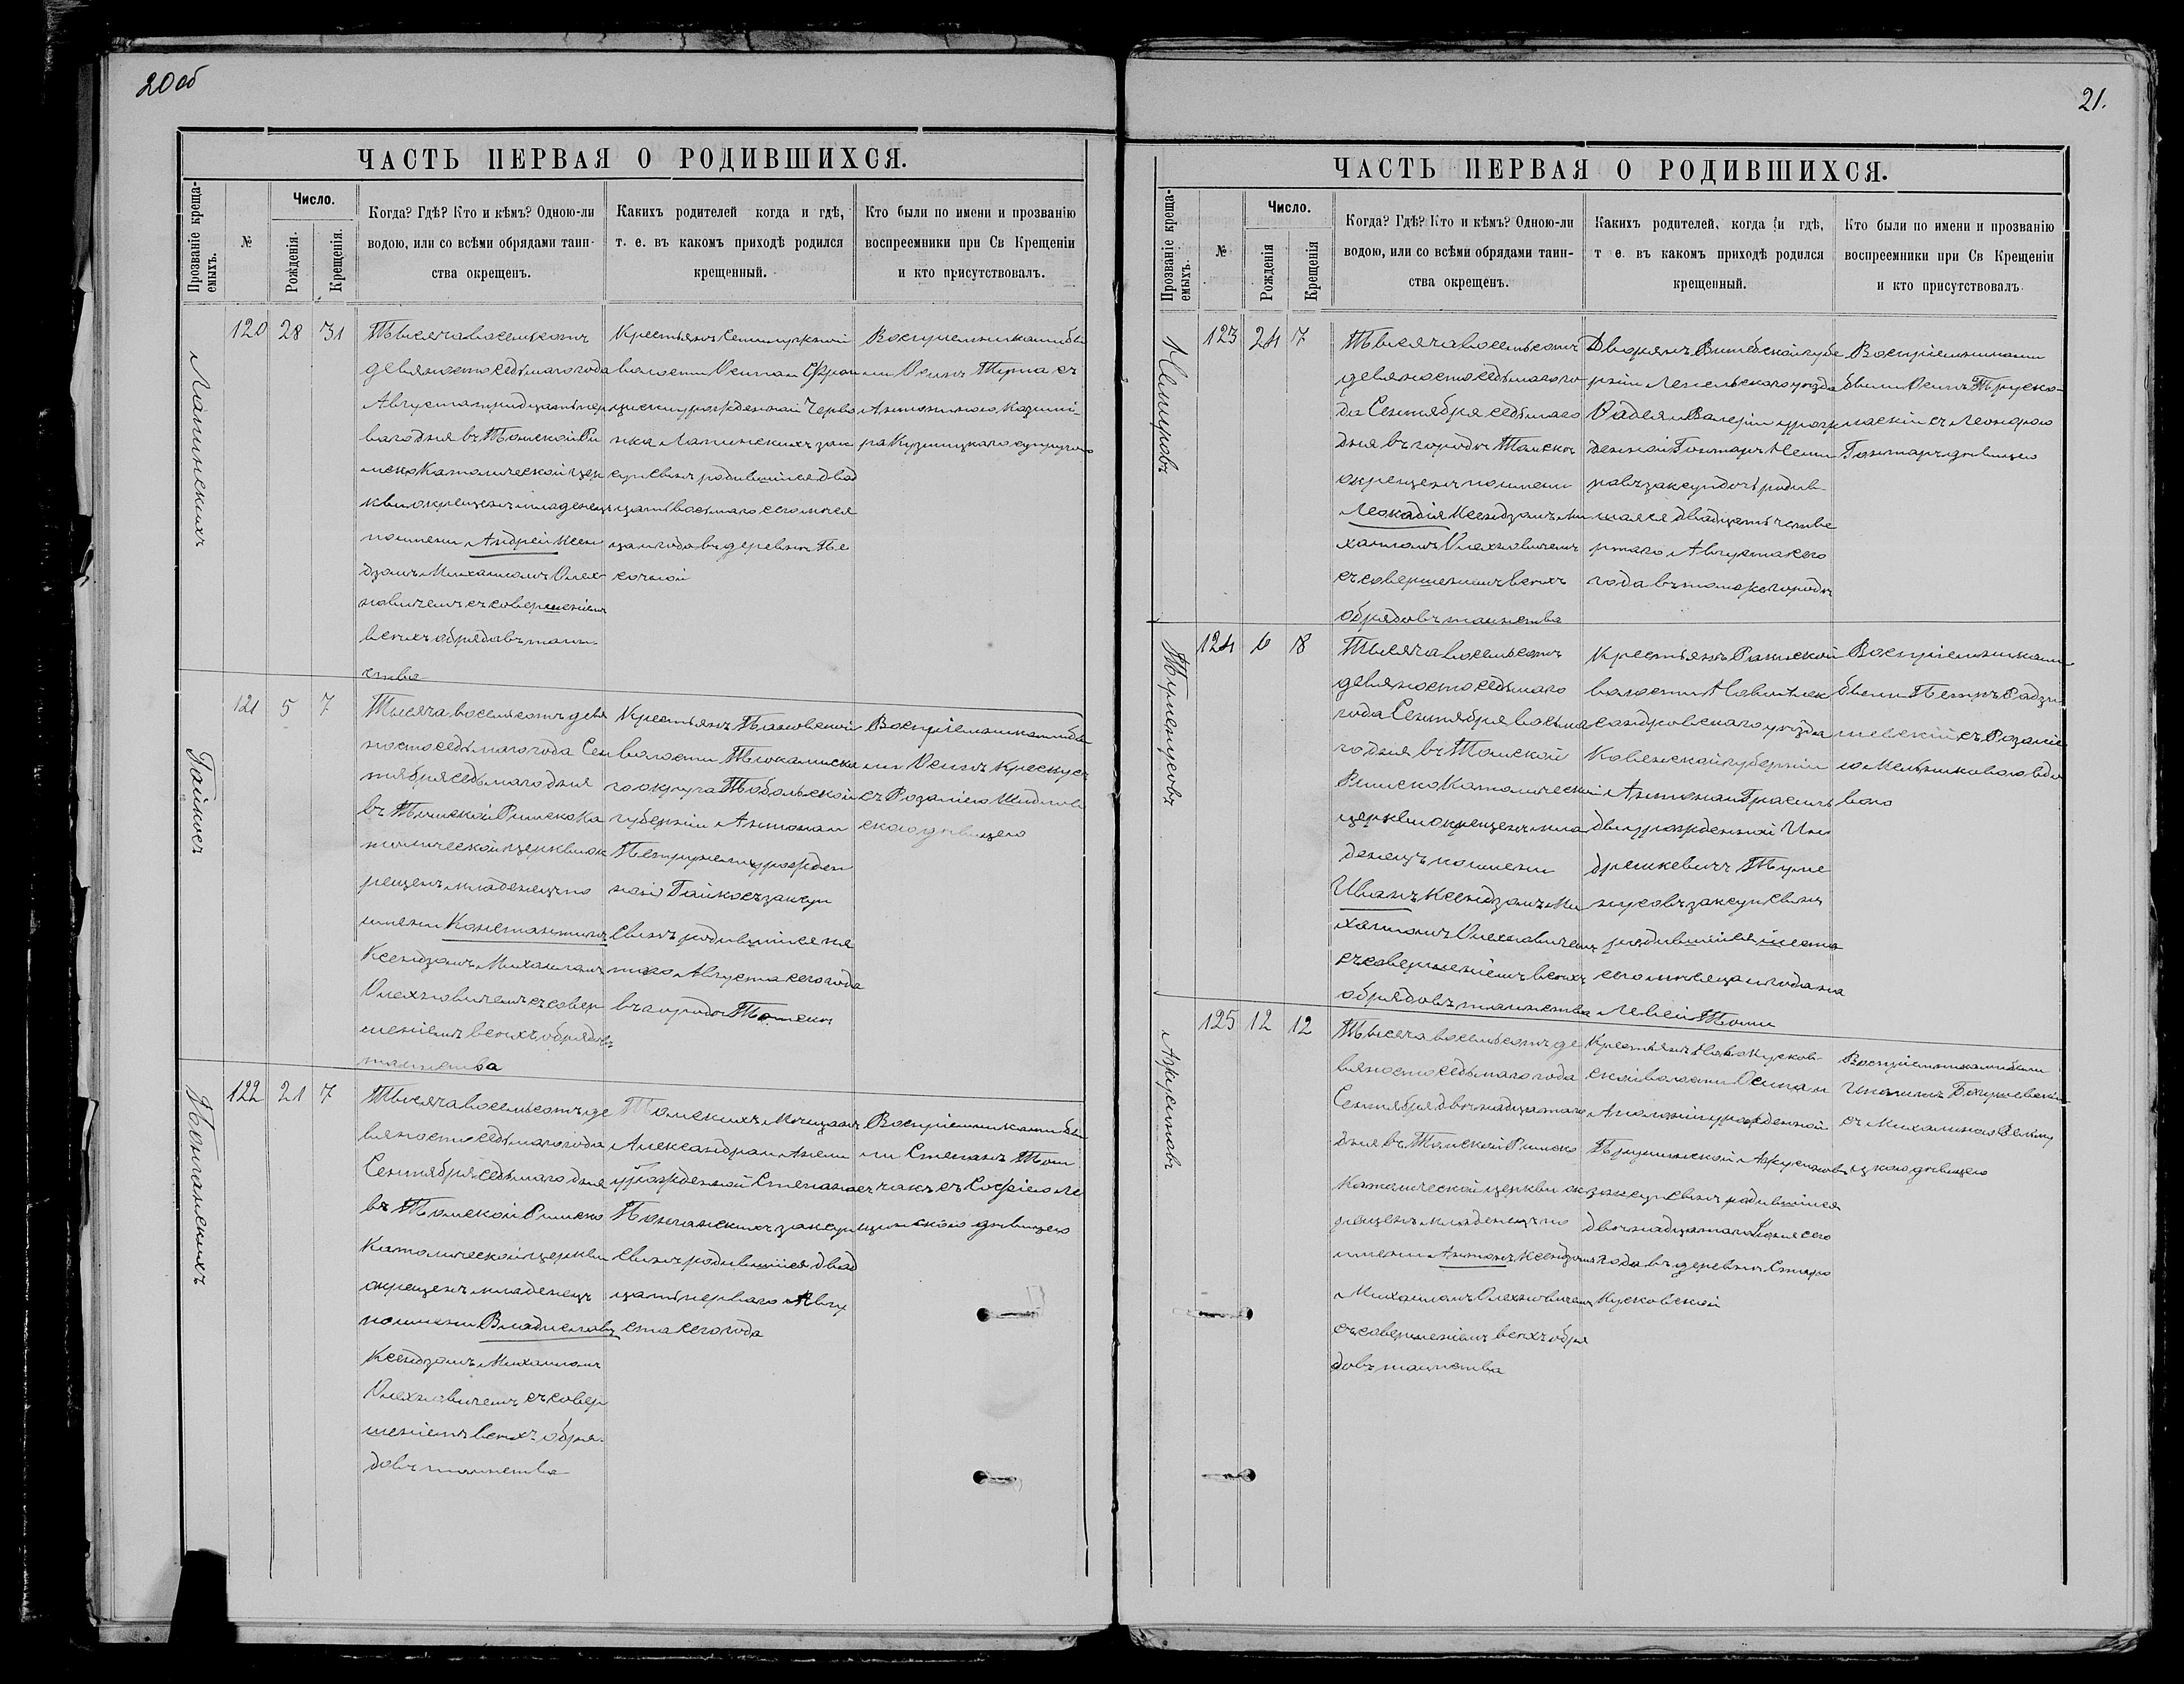 20 об
ЧАСТЬ ПЕРВАЯ О РОДИВШИХСЯ.
Прозваніе креща-
емыхъ.
№
Число.
Рожденія.
Крещенія.
Когда? Гдѣ? Кто и кѣмъ? Одною-ли
водою, или со всѣми обрядами таин-
ства окрещенъ.
Какихъ родителей когда и гдѣ,
т. е. въ какомъ приходѣ родился
крещенный.
Кто были по имени и прозванію
воспреемники при Св Крещеніи
и кто присутствовалъ.
Лапинскихъ
120 28 31
Тысяча восемьсотъ
девяносто седьмаго года
Августа тридцать пер
ваго дня въ Томской Ри
мско Католической цер
кви окрещенъ младенецъ
по имени Андрей Ксен
дзомъ Михаиломъ Олех
новичемъ съ совершеніемъ
всѣхъ обрядовъ таин-
ства
Крестьянъ Семилужной
волости Осипа и Фран
циски урожденной Черво
нка Лапинскихъ зак
супр сынъ родившійся двад
цать восьмаго сего мѣся
ца и года въ деревнѣ Пе
сочной
Воспріемниками бы
ли Осипъ съ
Антониною Казими-
ра Кузмицкаго супругою
Гайкосъ
121 5 7
Тысяча восемьсотъ девя
носто седьмаго года Сен
тября седьмаго дня
въ Томской Римско Ка
толической церкви ок
рещенъ младенецъ по
имени Константинъ
Ксендзомъ Михаиломъ
Олехновичемъ съ совер
шеніемъ всѣхъ обрядовъ
таинства
Крестьянъ
волости Тюкалинска
го округа Тобольской
губерніи Антона и
Петрунели урожден
ной Гайкосъ зак суп
сынъ родившійся пя
таго Августа сего года
въ городѣ Томскѣ
Воспріемниками бы
ли Осипъ
съ Розаліею
скою дѣвицею
Понганскихъ
122 21 7
Тысяча восемьсотъ де
вяносто седьмаго года
Сентября седьмаго дня
въ Томской Римско
Католической церкви
окрещенъ младенецъ
по имени Владиславъ
Ксендзомъ Михаиломъ
Олехновичемъ съ совер
шеніемъ всѣхъ обря-
довъ таинства
Томскихъ Мѣщанъ
Александра и Анели
урожденной
Понганскихъ зак суп
сынъ родившійся двад
цать перваго Авгу
ста сего года
Воспріемниками бы
ли Степанъ
съ Софіею
дѣвицею
21.
ЧАСТЬ ПЕРВАЯ О РОДИВШИХСЯ.
Прозваніе креща-
емыхъ.
№
Число.
Рожденія
Крещенія
Когда? Гдѣ? Кто и кѣмъ? Одною-ли
водою, или со всѣми обрядами таин-
ства окрещенъ.
Какихъ родителей, когда и гдѣ,
т е. въ какомъ приходѣ родился
крещенный.
Кто были по имени и прозванію
воспреемники при Св Крещеніи
и кто присутствовалъ.
Немировъ
123 24 7
Тысяча восемьсотъ
девяносто седьмаго го
да Сентября седьмаго
дня въ городѣ Томскѣ
окрещенъ по имени
Леокадія Ксендзомъ Ми
хаиломъ Олехновичемъ
съ совершеніемъ всѣхъ
обрядовъ таинства
Дворянъ Витебской губе
рніи Лепельскаго уѣзда
Фадея и Валеріи урож
денной Гонтарь Неми
ровъ зак суп дочь родив
шаяся двадцать четве
ртаго Августа сего
года въ томъ же городѣ
Воспріемниками
были Осипъ Труско-
ляскій съ Леонорою
Гонтарь дѣвицею
124 6 8
Тысяча восемьсотъ
девяносто седьмаго
года Сентября восьма
го дня въ Томской
Римско Католической
церкви окрещенъ мла
денецъ по имени
Иванъ Ксендзомъ Ми
хаиломъ Олехновичемъ
съ совершеніемъ всѣхъ
обрядовъ таинства
Крестьянъ Ракиской
волости Новоалек
сандровскаго уѣзда
Ковенской губерніи
Антона и
урожденной Ин
дрешкевичъ
зак суп сынъ
родившійся шеста
го сего мѣсяца и года на
Лебей Томи
Воспріемниками
были Петръ Радзи-
шевскій съ Розаліе
ю Мельниковою вдо
вою
125 12 12
Тысяча восемьсотъ де
вяносто седьмаго года
Сентября двѣнадцатаго
дня въ Томской Римско
Католической церкви ок
рещенъ младенецъ по
имени Антонъ Ксендзомъ
Михаиломъ Олехновичемъ
съ совершеніемъ всѣхъ обря
довъ таинства
Крестьянъ Ново Кусков-
ской волости Осипа и
Аполоніи урожденной
зак суп сынъ родившійся
двѣнадцатаго Іюня сего
года въ деревнѣ Старо
Кусковской
Воспріемниками были
съ Михалиною
дѣвицею